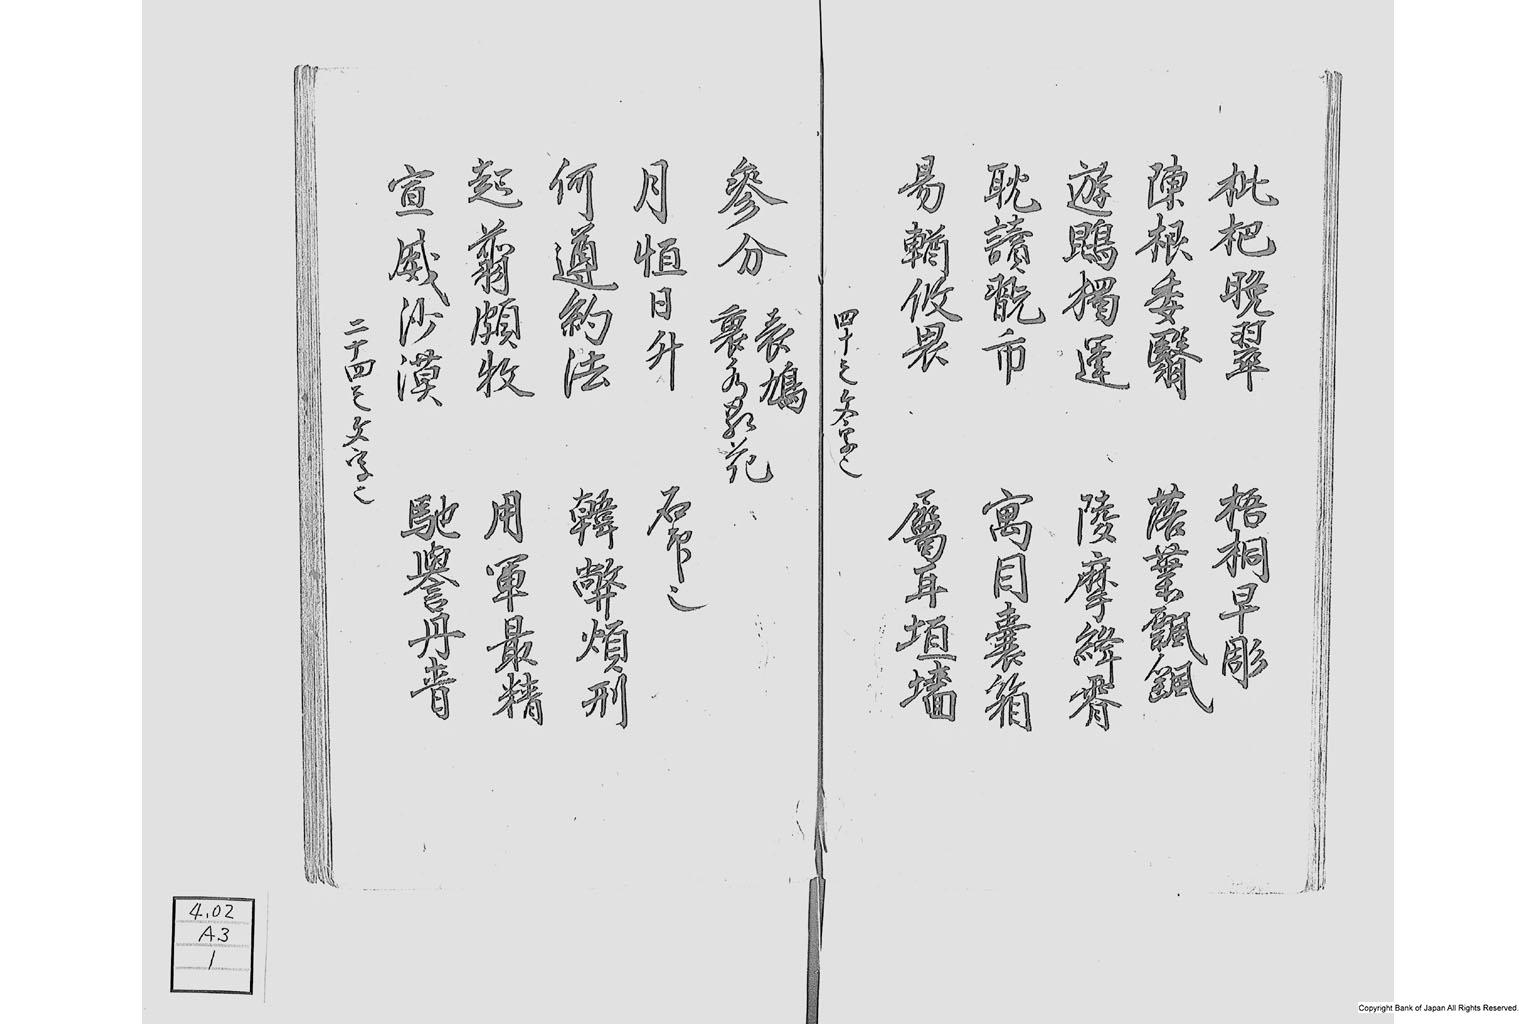 枇杷晩翠　梧桐早彫
陳根委翳　落葉飄飖
遊鵾獨運　陵摩絳霄
耽讀翫市　寓目囊箱
易輶攸畏　屬耳垣墻
四十之文字之
參分
表鳩
裏
花
月恒日升
何遵約法　韓弊煩刑
起翦頗牧　用軍最精
宣威沙漠　馳譽丹青
二十四之文字之
4.02
A3
1
Copyright Bank of Japan All Rights Reserved.